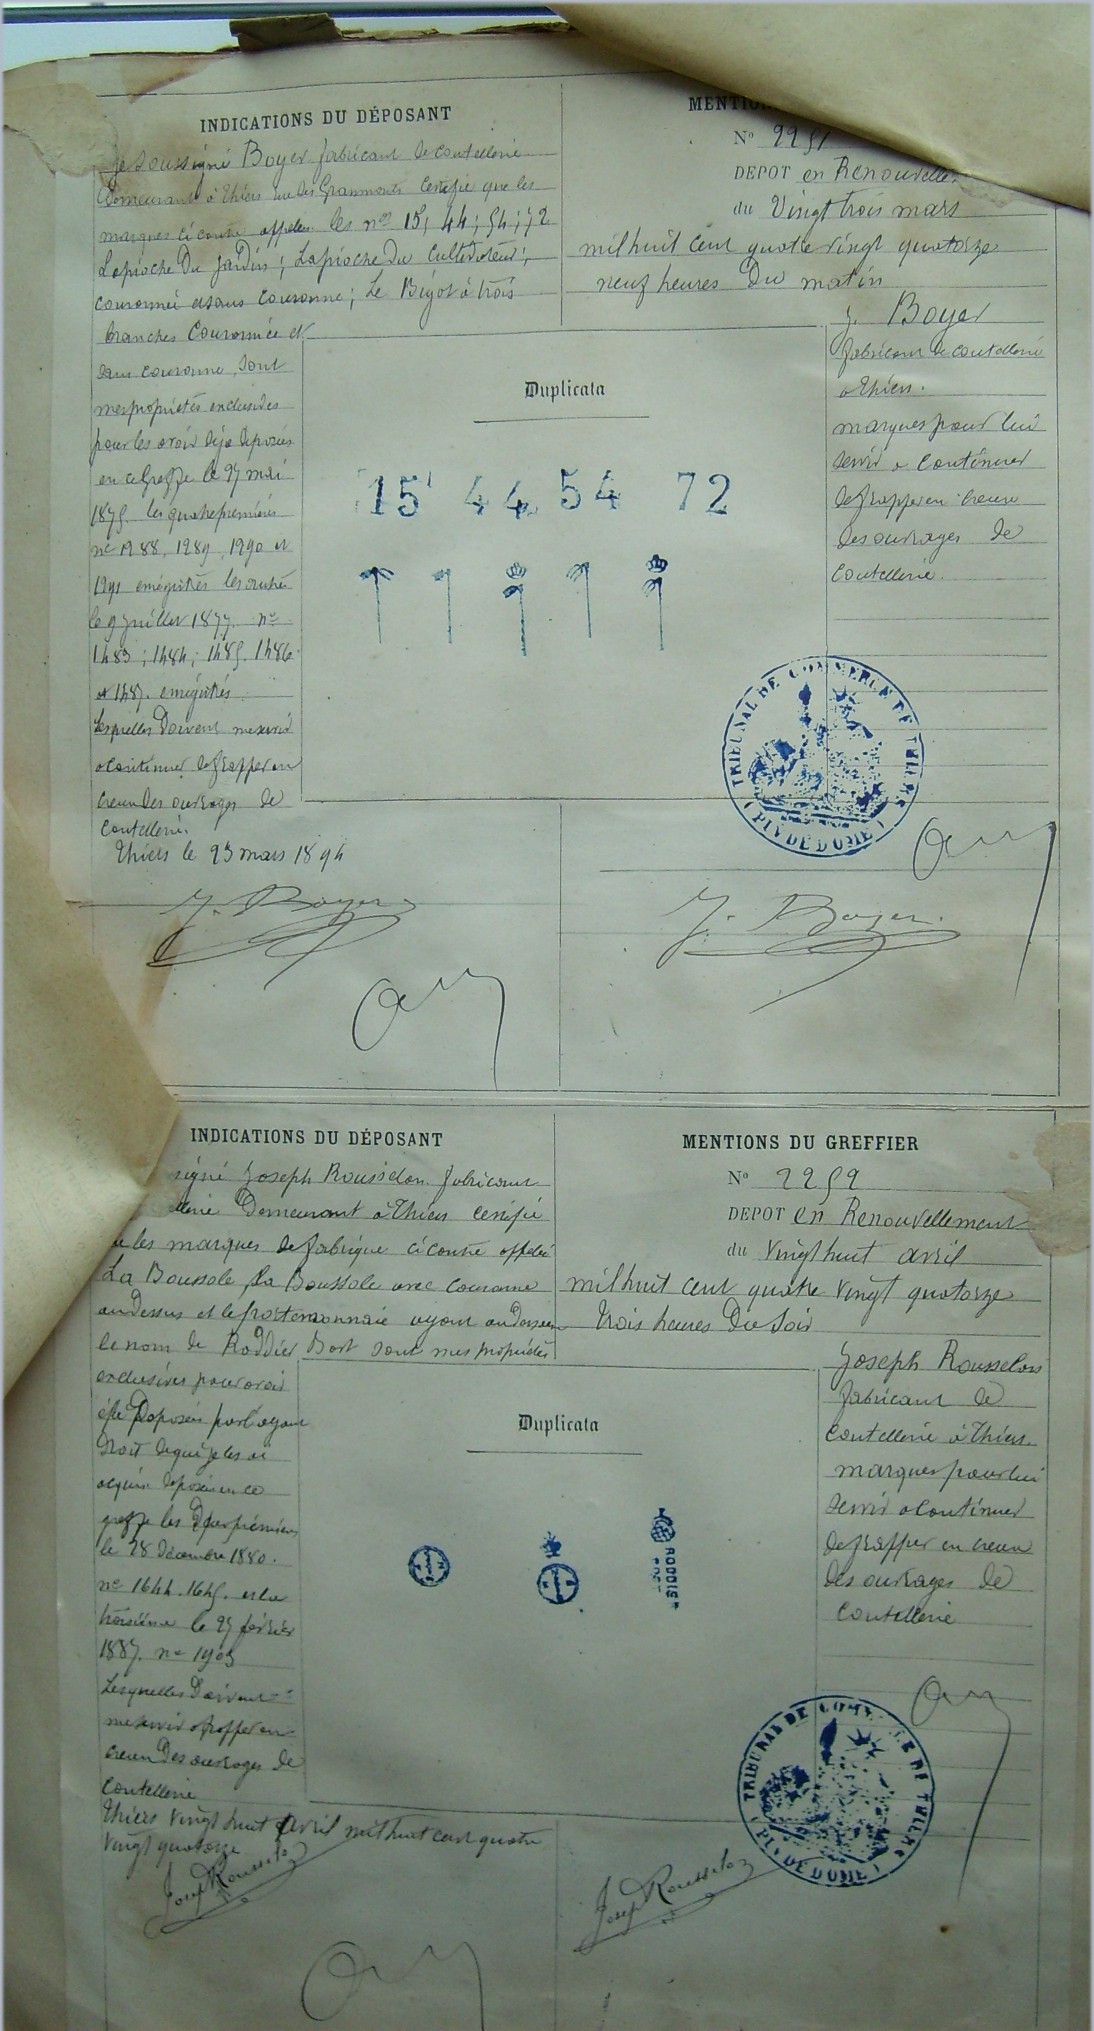 INDICATIONS DU DÉPOSANT
Je soussigné Boyer fabricant de coutellerie
Demeurant à Thiers rue des Grammonts Certifie que les
marques ci contre appelées les nos 15; 44; 54; 72
La pioche du Jardin; La pioche du Cultivateur;
couronnée et sans couronne; Le Bigot à trois
branches Couronnée et
sans couronne, sont
mes propriétés exclusives
pour les avoir déjà déposées
en ce Greffe le 27 mai
1875. les quatre premières
no 1288, 1289, 1290 et
1291 enregistrés les autres
le 9 juillet 1877. no
1483; 1484; 1485. 1486
et 1487. enregistrés
Lesquelles Doivent me servir
à continuer de frapper en
creux des ouvrages de
Coutellerie.
Thiers le 23 mars 1894
J. Boyer
MENTIO
No 2251
DEPOT en Renouvelle
du Vingt trois mars
mil huit cent quatre vingt quatorze
neuf heures Du matin
J. Boyer
fabricant de coutellerie
à Thiers.
marques pour lui
servir à continuer
de frapper en creux
des ouvrages de
Coutellerie.
Duplicata
15 44 54 72
TRIBUNAL DE COMMERCE DE THIERS
(PUY DE DOME)
J. Boyer.
INDICATIONS DU DÉPOSANT
signé Joseph Rousselon fabricant
llerie Demeurant à Thiers certifie
e les marques de fabrique ci contre appelées
La Boussole, la Boussole avec couronne
au dessus et le portemonnaie ayant au dessous
le nom de Roddier Bort sont mes propriétés
exclusives pour avoir
été Déposées par l'ayant
Droit de qui je les ai
acquis déposées en ce
greffe les Deux premières
le 28 Décembre 1880.
no 1644. 1645. et la
troisième le 25 février
1887. no 1903
Lesquelles Doivent
me servir à frapper en
creux Des ouvrages de
Coutellerie
Thiers vingt huit Avril mil huit cent quatre
vingt quatorze
Joseph Rousselon
MENTIONS DU GREFFIER
No 2252
DEPOT en Renouvellement
du Vingt huit avril
mil huit cent quatre vingt quatorze
trois heures Du Soir
Joseph Rousselon
fabricant de
Coutellerie à Thiers.
marques pour lui
servir à continuer
de frapper en creux
des ouvrages de
Coutellerie
Duplicata
TRIBUNAL DE COMMERCE DE THIERS
(PUY DE DOME)
Joseph Rousselon